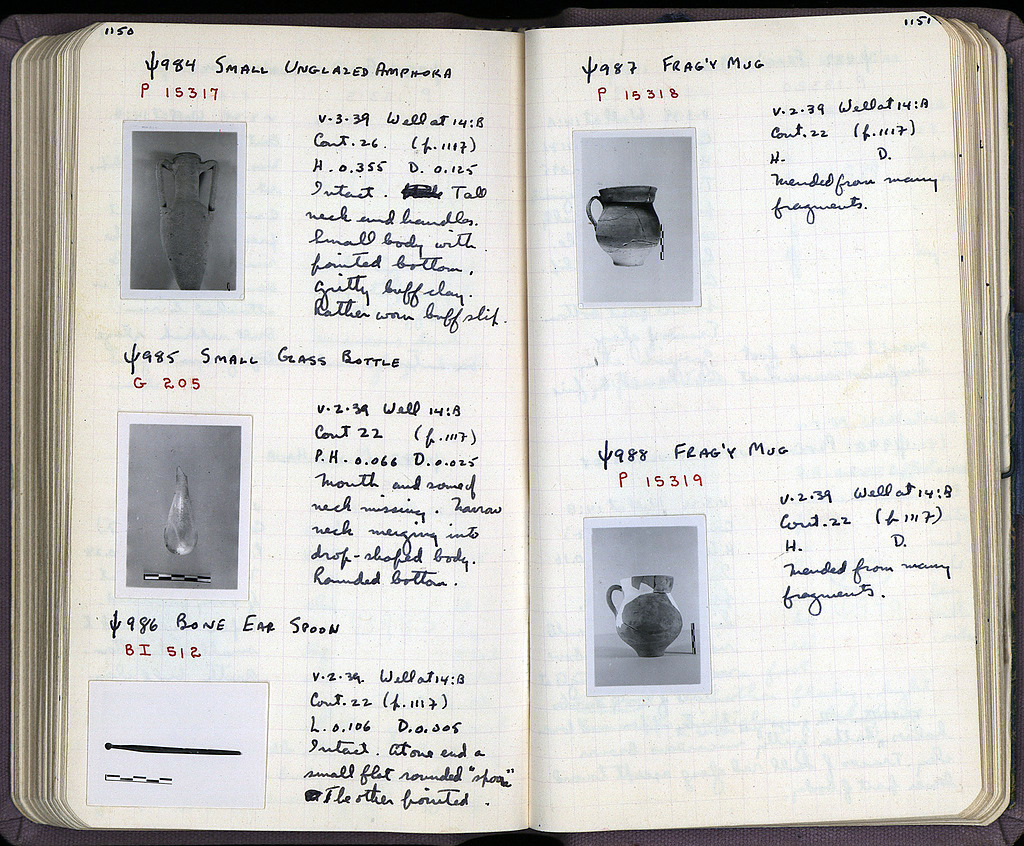 1150
ψ984 SMALL UNGLAZED AMPHORA
P 15317
V.3.39 Well at 14:B
Cont. 26. (p.1117)
H. 0.355 D. 0.125
Intact. Tall
neck and handles.
Small body with
pointed bottom.
Gritty buff clay.
Rather worn buff slip.
ψ985 SMALL GLASS BOTTLE
G 205
V.2.39 Well 14:B
Cont 22 (p.1117)
P.H. 0.066 D. 0.025
Mouth and some of
neck missing. Narrow
neck merging into
drop-shaped body.
Rounded bottom.
ψ986 BONE EAR SPOON
BI 512
V.2.39. Well at 14:B
Cont.22 (p.1117)
L. 0.106 D. 0.005
Intact. At one end a
small flat rounded "spoon"
The other pointed.
1151
ψ987 FRAG'Y MUG
P 15318
V.2.39 Well at 14:B
Cont.22 (p.1117)
H. D.
Mended from many
fragments.
ψ988 FRAG'Y MUG
P 15319
V.2.39 Well at 14:B
Cont.22 (p.1117)
H. D.
Mended from many
fragments.